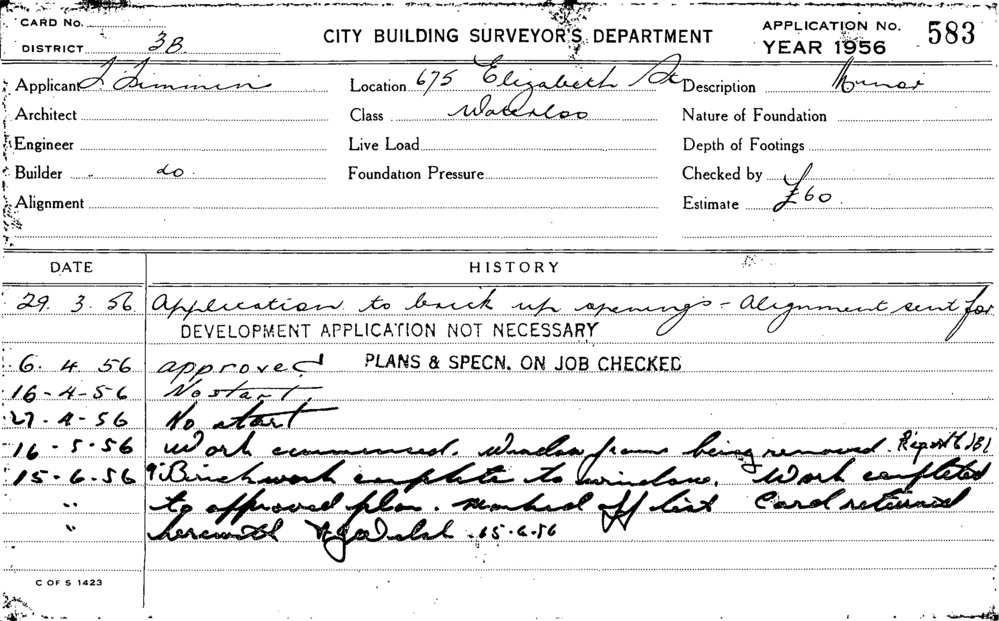 CARD No.
DISTRICT 3B
CITY BUILDING SURVEYOR'S DEPARTMENT
APPLICATION No. 583
YEAR 1956
Applicant Timmin Location 675 Elizabeth St Description Minor
Architect Class Waterloo Nature of Foundation
Engineer Live Load Depth of Footings
Builder do. Foundation Pressure Checked by
Alignment Estimate £60
DATE HISTORY
29. 3. 56 Application to brick up openings - Alignment sent for
DEVELOPMENT APPLICATION NOT NECESSARY
6. 4 56 approved PLANS & SPECN. ON JOB CHECKED
16-4-56 No start
27-4-56 No start
16-5-56 Work commenced. Window frame being removed.
15-6-56 Brickwork complete to window. Work completed
" to approved plan. marked off list Card returned
" herewith 15-6-56
C OF S 1423